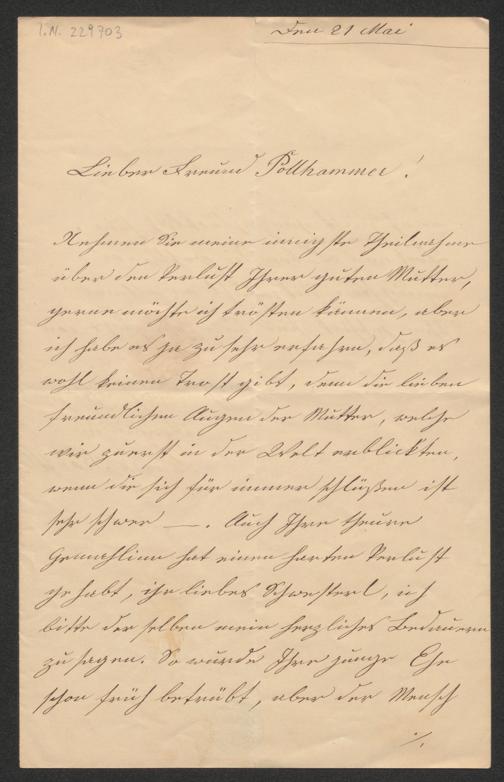 I.N. 229703
Den 21 Mai
Lieber Freund Pollhammer!
Nehmen Sie meine innigste Theilnahme
über den Verlust Ihrer guten Mutter,
gerne möchte ich trösten können, aber
ich habe es ja zu sehr erfahren, daß es
wohl keinen Trost gibt, denn die lieben
freundlichen Augen der Mutter, welche
wir zuerst in der Welt erblickten,
wenn die sich für immer schlüßen ist
sehr schwer —. Auch Ihre theure
Gemahlinn hat einen harten Verlust
gehabt, ihr liebes Schwesterl, ich
bitte der selben mein herzliches Bedauern
zu sagen. So wurde Ihre junge Ehe
schon früh betrübt, aber der Mensch
./.